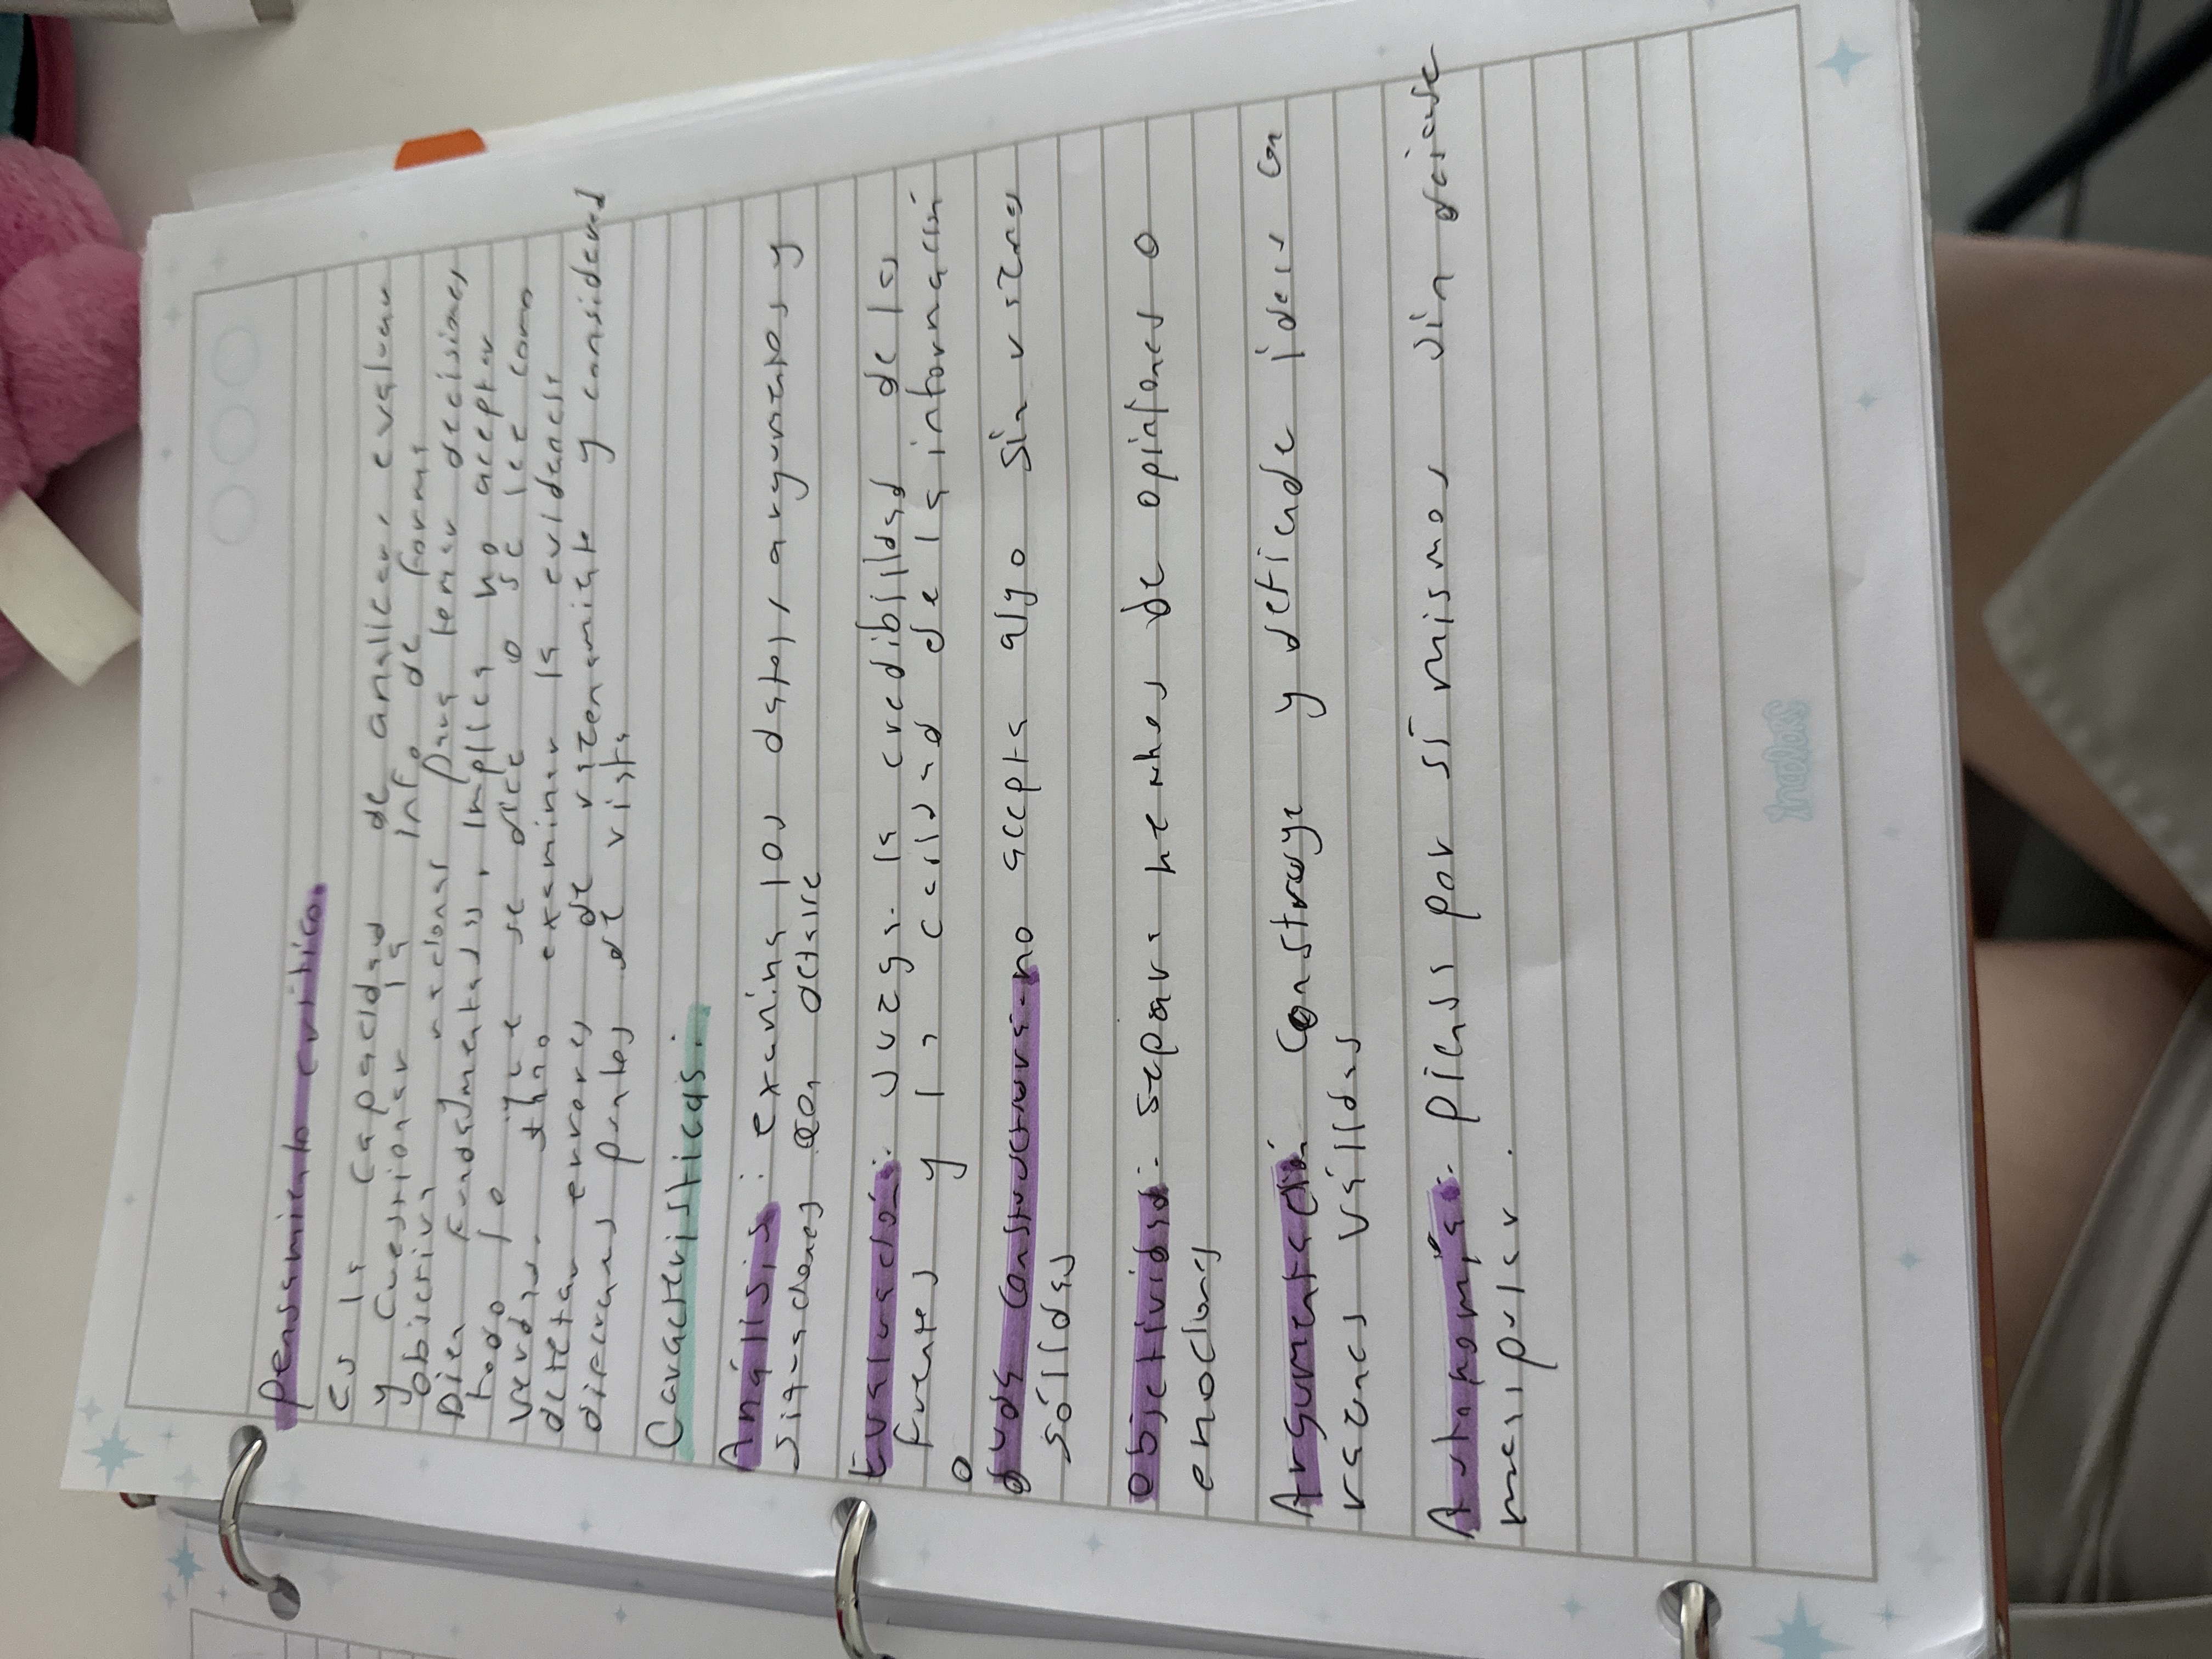 Pensamiento crítico.
es la capacidad de analicar, evaluar
y cuestionar la inf. de forma
objectiva y racional para tomar decisiones
Bien fundadmentadas, implica no acepter
todo lo que se dice o se lee como
verdad, sino examiner la evidencia
detetar errores de vazonamieto y considerad
diferenes puntos de vista
Características:
Análisis: examina los datos, argumentos y
situaciones con detalle
Evaluación: Juzga la credibilidad de las
fuentes y la calidad de la información
Duda constructiva: no accepta algo sin razones
sólidas
Objectividad: separa hechos de opiniones o
emociones
Argumentación construye y defiende ideas con
razones válidas
Autonomía: piensa por sí mismo, sin dejarse
manipular.
Indelos